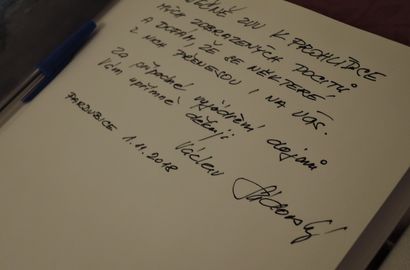 ZVU K PROHLÍDCE
MÝCH ZOBRAZENÝCH POCITŮ
A DOUFÁM, ŽE SE NĚKTERÉ
Z NICH PŘENESOU I NA VÁS.
Za případné vyjádření dojmů
Vám upřímně děkuji
Václav
PARDUBICE 1.11.2018